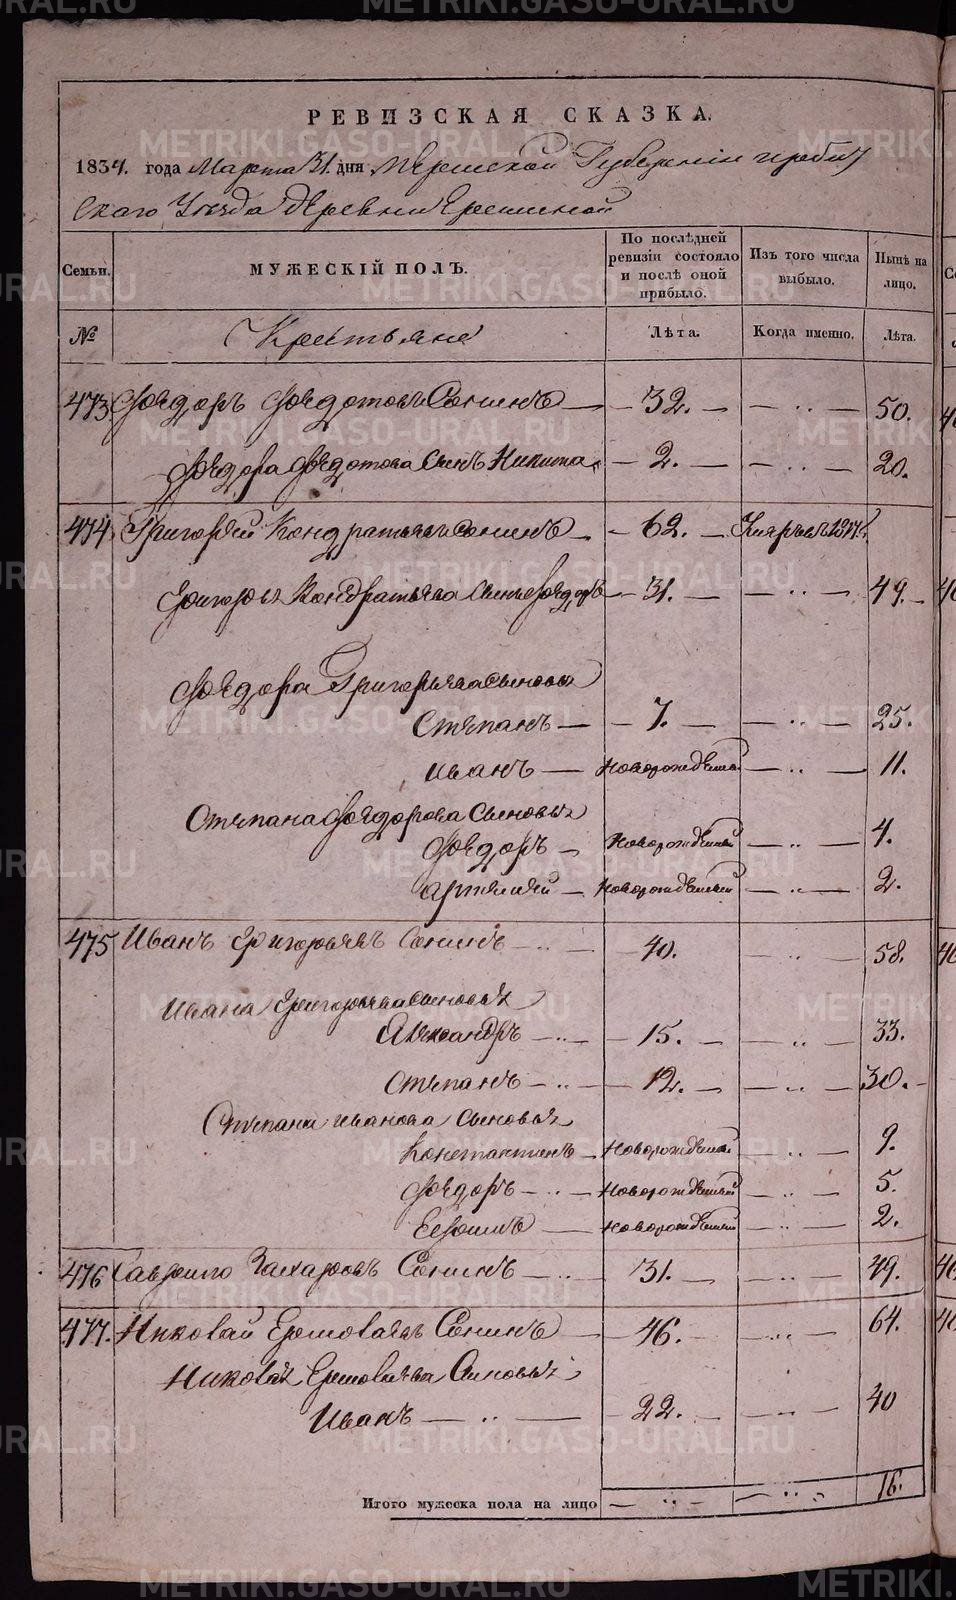 METRIKI.GASO-URAL.RU
РЕВИЗСКАЯ СКАЗКА.
1834. года Марта 31. дня Пермской Губернiи Ирбит
скаго Уезда деревни
Семьи. МУЖЕСКІЙ ПОЛЪ. По послѣдней ревизіи состояло и послѣ оной прибыло. Изъ того числа выбыло. Нынѣ на лицо.
№ Крестьяне Лѣта. Когда именно. Лѣта.
473 Фёдоръ Федотовъ Сонинъ — 32. — — „ — 50.
Фёдора Федотова сынъ Никита — 2. — — „ — 20.
474 Григорiй Кондратьевъ Сонинъ — 62. — 18
Григорья Кондратьева сынъ Фёдоръ — 31. — — „ — 49.
Фёдора Григорьева сыновья
Степанъ — 7. — — „ — 25.
Иванъ — Новорожденный — „ — 11.
Степана Фёдорова сыновья
Фёдоръ — Новорожденный — „ — 4.
Артемий — Новорожденный — „ — 2.
475 Иванъ Григорьевъ Сонинъ — „ — 40. — „ — 58.
Ивана Григорьева сыновья
Александръ — „ — 15. — — „ — 33.
Степанъ — „ — 12. — — „ — 30.
Степана Иванова сыновья
Константинъ — Новорожденный — „ — 9.
Фёдоръ — „ — Новорожденный — „ — 5.
Ефимъ — Новорожденный — „ — 2.
476 Гаврило Захаровъ Сонинъ — „ 31. — — „ — 49.
477. Николай Ермолаевъ Сонинъ — 46. — — „ — 64.
Николая Ермолаева сыновья
Иванъ — „ — 22. — — „ — 40
Итого мужеска пола на лицо — „ — — „ — 16.